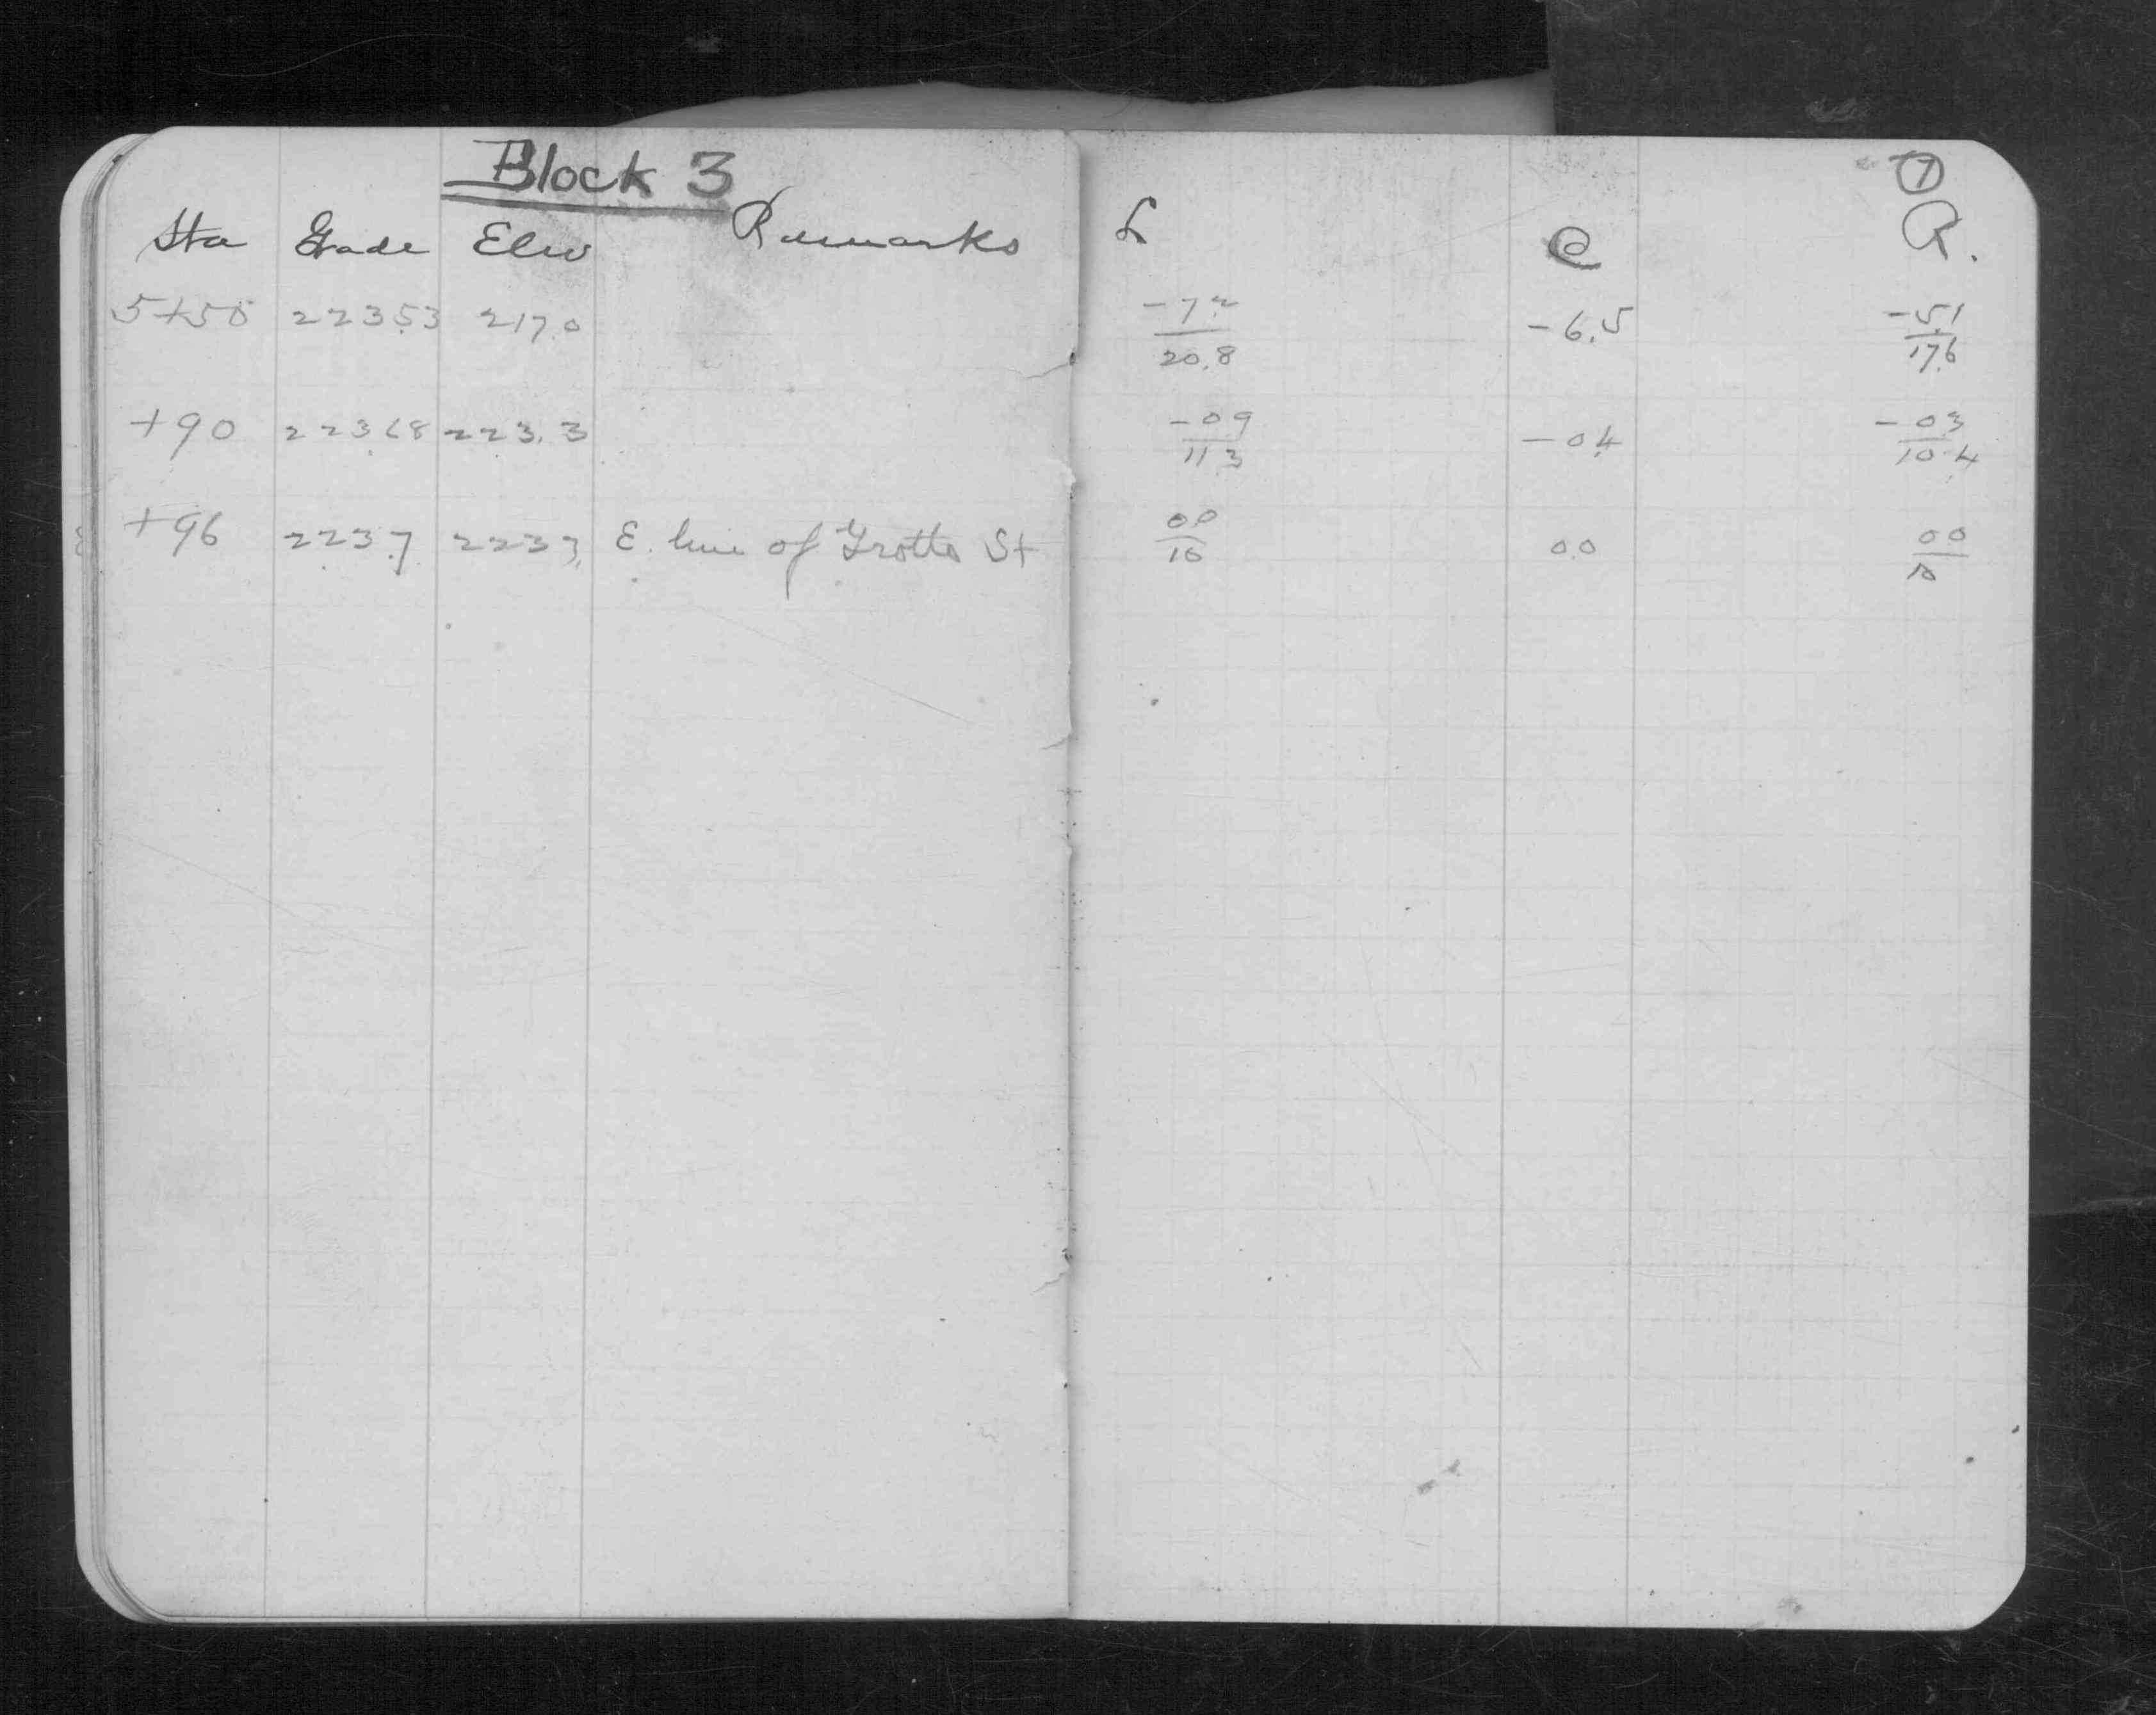 Block 3
7
Sta Grade Elev Remarks L C R.
5+50 223.53 217.0 -7.2/20.8 -6.5 -5.1/17.6
+90 223.68 223.3 -0.9/11.3 -0.4 -0.3/10.4
+96 223.7 223.7 E. line of Grotto St 0.0/10 0.0 0.0/10